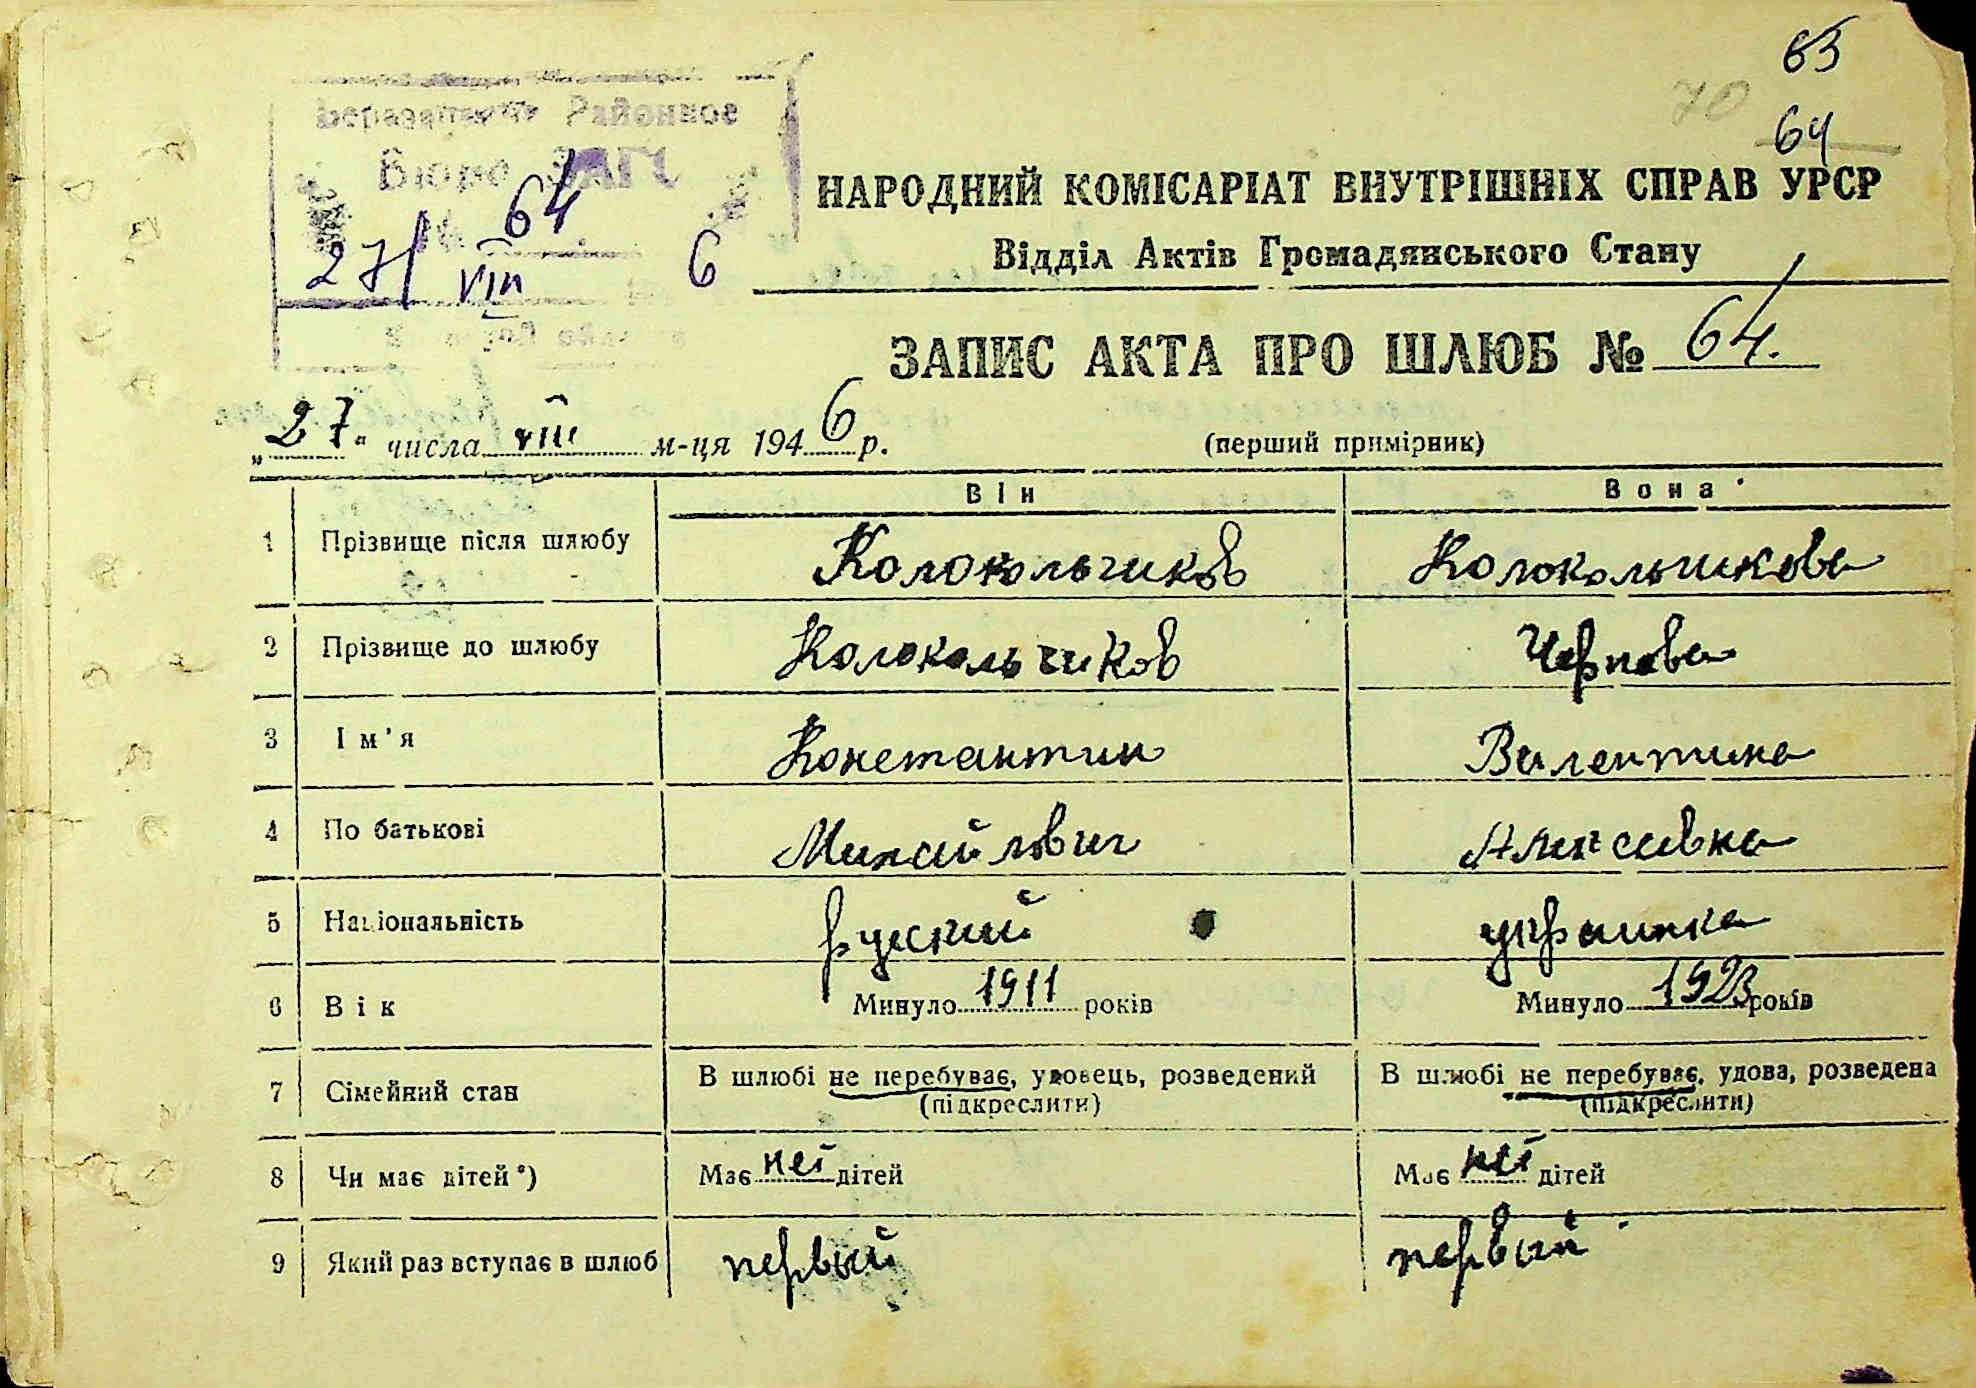 63
70
64
Районное
Бюро ЗАГС
64
27/VIII 6
НАРОДНИЙ КОМІСАРІАТ ВНУТРІШНІХ СПРАВ УРСР
Відділ Актів Громадянського Стану
ЗАПИС АКТА ПРО ШЛЮБ № 64.
„27" числа VIII м-ця 1946 р.
(перший примірник)
Він Вона
1 Прізвище після шлюбу Колокольчиков Колокольчикова
2 Прізвище до шлюбу Колокольчиков Чернова
3 Ім'я Константин Валентина
4 По батькові Михайлович Алексеевна
5 Національність руский украинка
6 Вік Минуло 1911 років Минуло 1923 років
7 Сімейний стан В шлюбі не перебуває, удовець, розведений В шлюбі не перебуває, удова, розведена
(підкреслити) (підкреслити)
8 Чи має дітей*) Має неї дітей Має неї дітей
9 Який раз вступає в шлюб первый первый